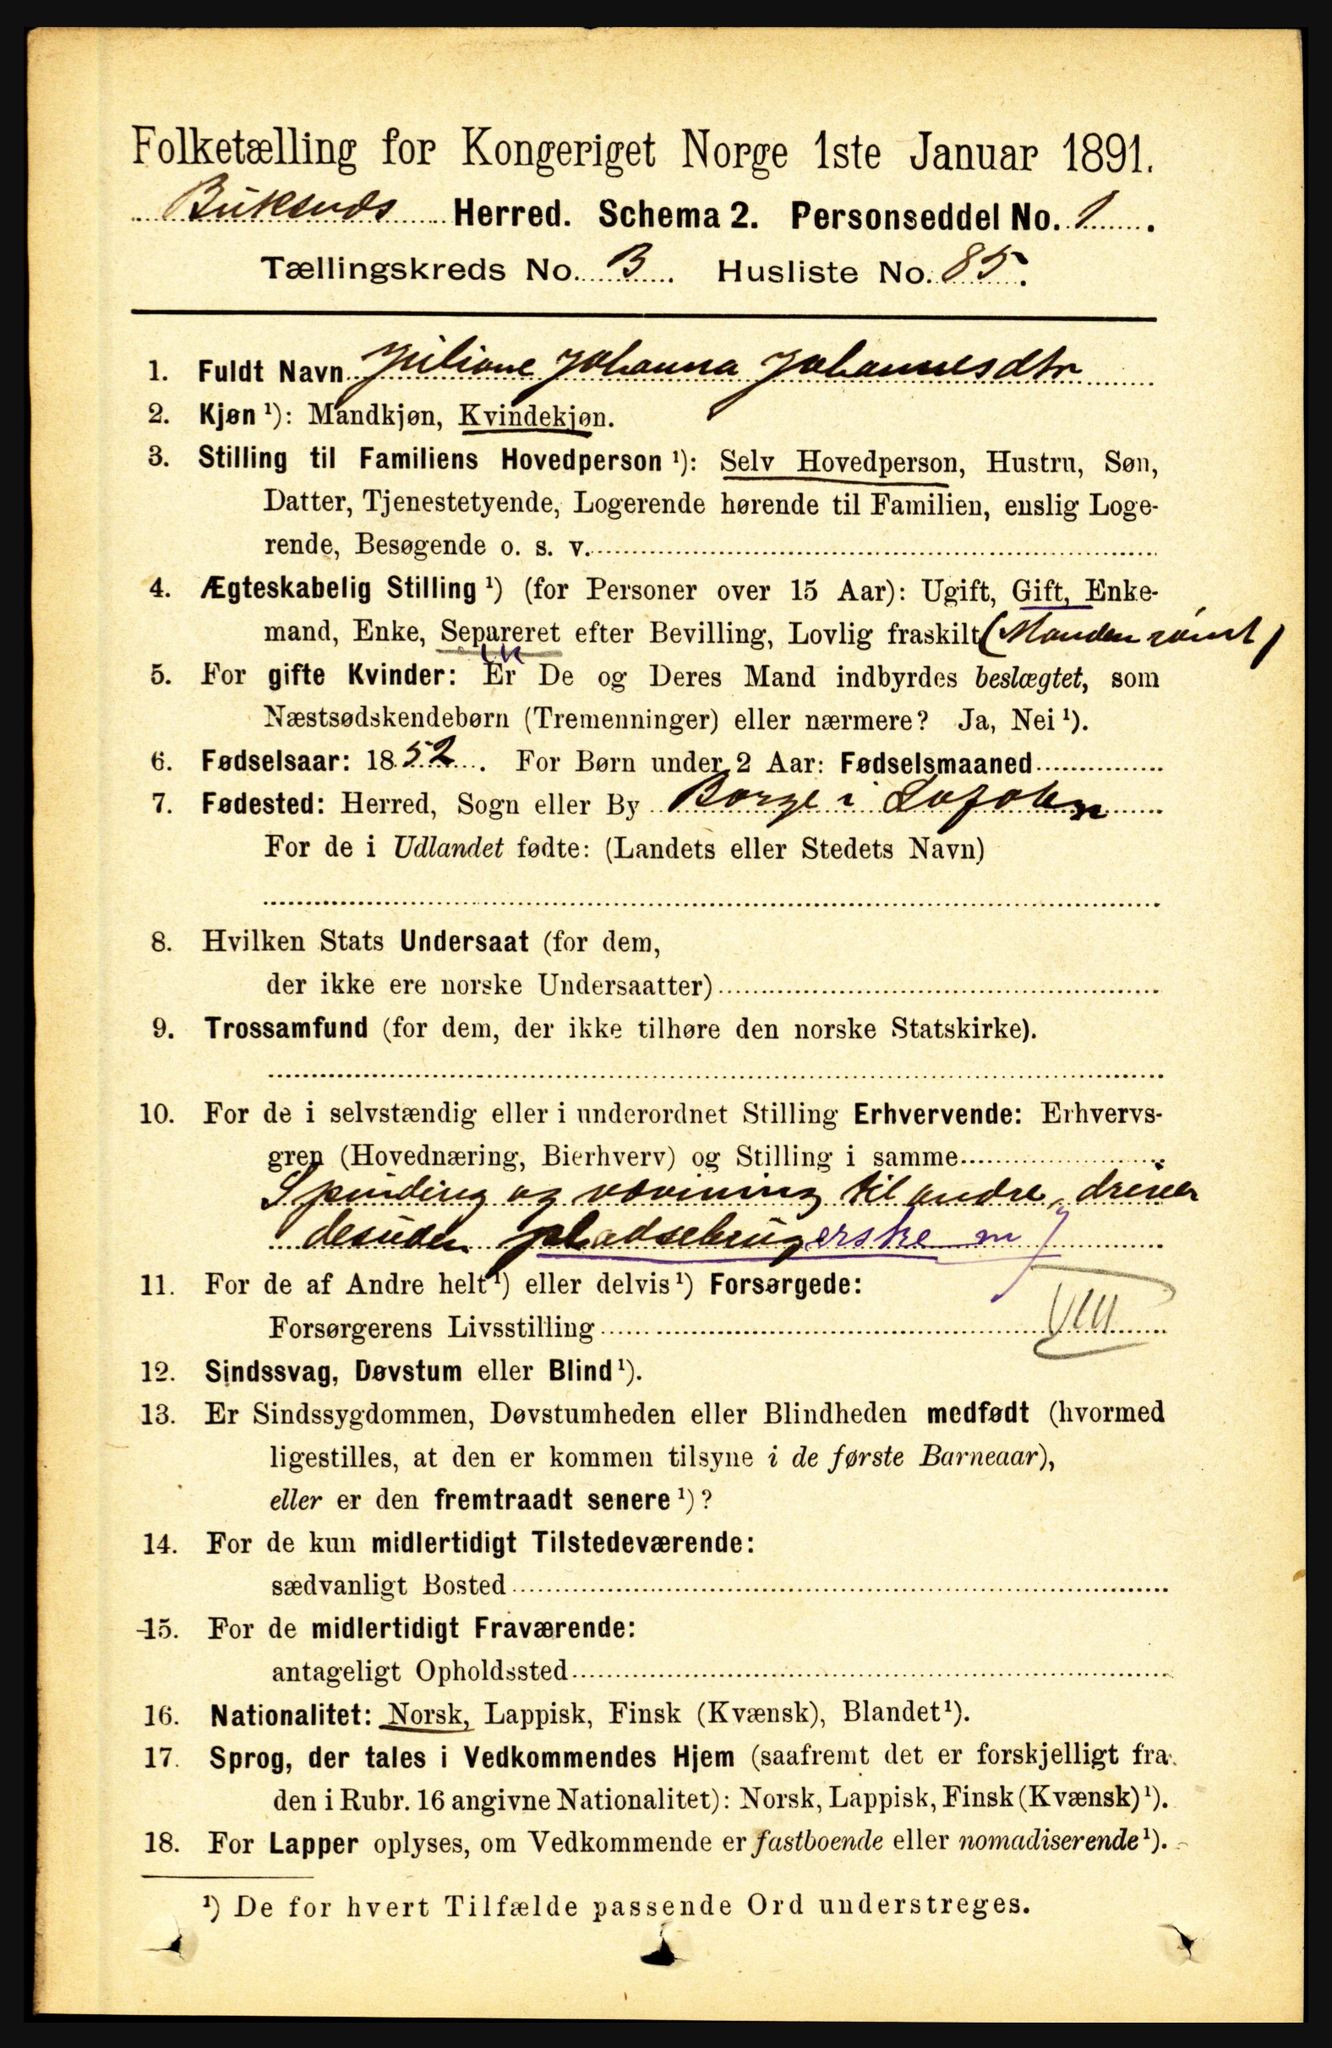 Folketælling for Kongeriget Norge 1ste Januar 1891.
Buksnæs Herred. Schema 2. Personseddel No. 1.
Tællingskreds No. 3. Husliste No. 85.
1. Fuldt Navn Juliane Johanna Johannesdtr
2. Kjøn ¹): Mandkjøn, Kvindekjøn.
3. Stilling til Familiens Hovedperson ¹): Selv Hovedperson, Hustru, Søn,
Datter, Tjenestetyende, Logerende hørende til Familien, enslig Loge-
rende, Besøgende o. s. v.
4. Ægteskabelig Stilling ¹) (for Personer over 15 Aar): Ugift, Gift, Enke-
mand, Enke, Separeret efter Bevilling, Lovlig fraskilt (Manden rømt)
5. For gifte Kvinder: Er De og Deres Mand indbyrdes beslægtet, som
Næstsødskendebørn (Tremenninger) eller nærmere? Ja, Nei ¹).
6. Fødselsaar: 1852. For Børn under 2 Aar: Fødselsmaaned
7. Fødested: Herred, Sogn eller By Borge i Lofoten
For de i Udlandet fødte: (Landets eller Stedets Navn)
8. Hvilken Stats Undersaat (for dem,
der ikke ere norske Undersaatter)
9. Trossamfund (for dem, der ikke tilhøre den norske Statskirke).
10. For de i selvstændig eller i underordnet Stilling Erhvervende: Erhvervs-
gren (Hovednæring, Bierhverv) og Stilling i samme
Spinding og vævning til andre, driver
desuden pladsebrugerske m
11. For de af Andre helt ¹) eller delvis ¹) Forsørgede:
Forsørgerens Livsstilling VIII
12. Sindssvag, Døvstum eller Blind ¹).
13. Er Sindssygdommen, Døvstumheden eller Blindheden medfødt (hvormed
ligestilles, at den er kommen tilsyne i de første Barneaar),
eller er den fremtraadt senere ¹)?
14. For de kun midlertidigt Tilstedeværende:
sædvanligt Bosted
15. For de midlertidigt Fraværende:
antageligt Opholdssted
16. Nationalitet: Norsk, Lappisk, Finsk (Kvænsk), Blandet ¹).
17. Sprog, der tales i Vedkommendes Hjem (saafremt det er forskjelligt fra
den i Rubr. 16 angivne Nationalitet): Norsk, Lappisk, Finsk (Kvænsk) ¹).
18. For Lapper oplyses, om Vedkommende er fastboende eller nomadiserende ¹).
¹) De for hvert Tilfælde passende Ord understreges.